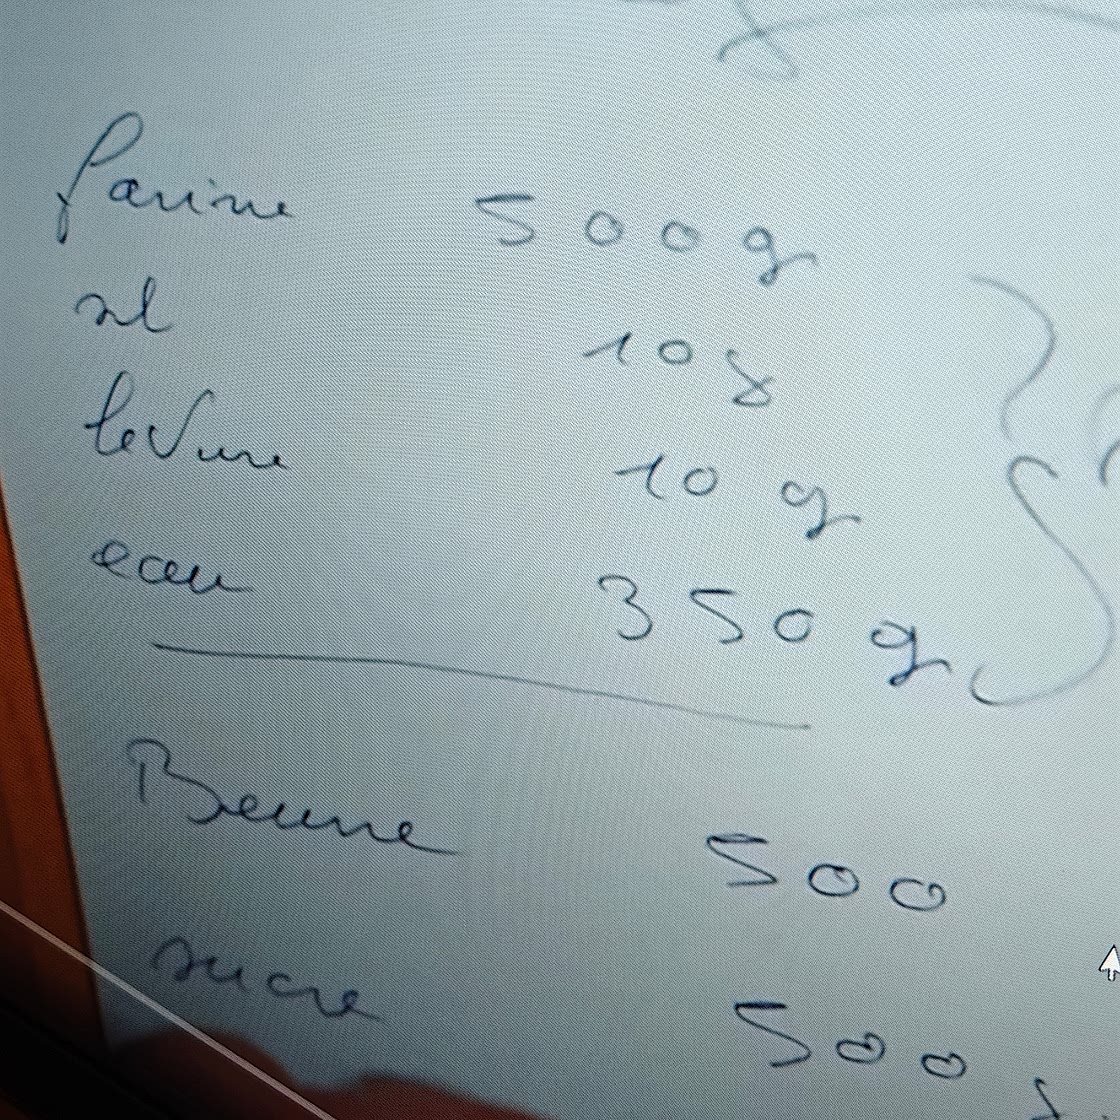 farine 500g
sel 10g
leVure 10 g
eau 350 g
Beurre 500
sucre 500